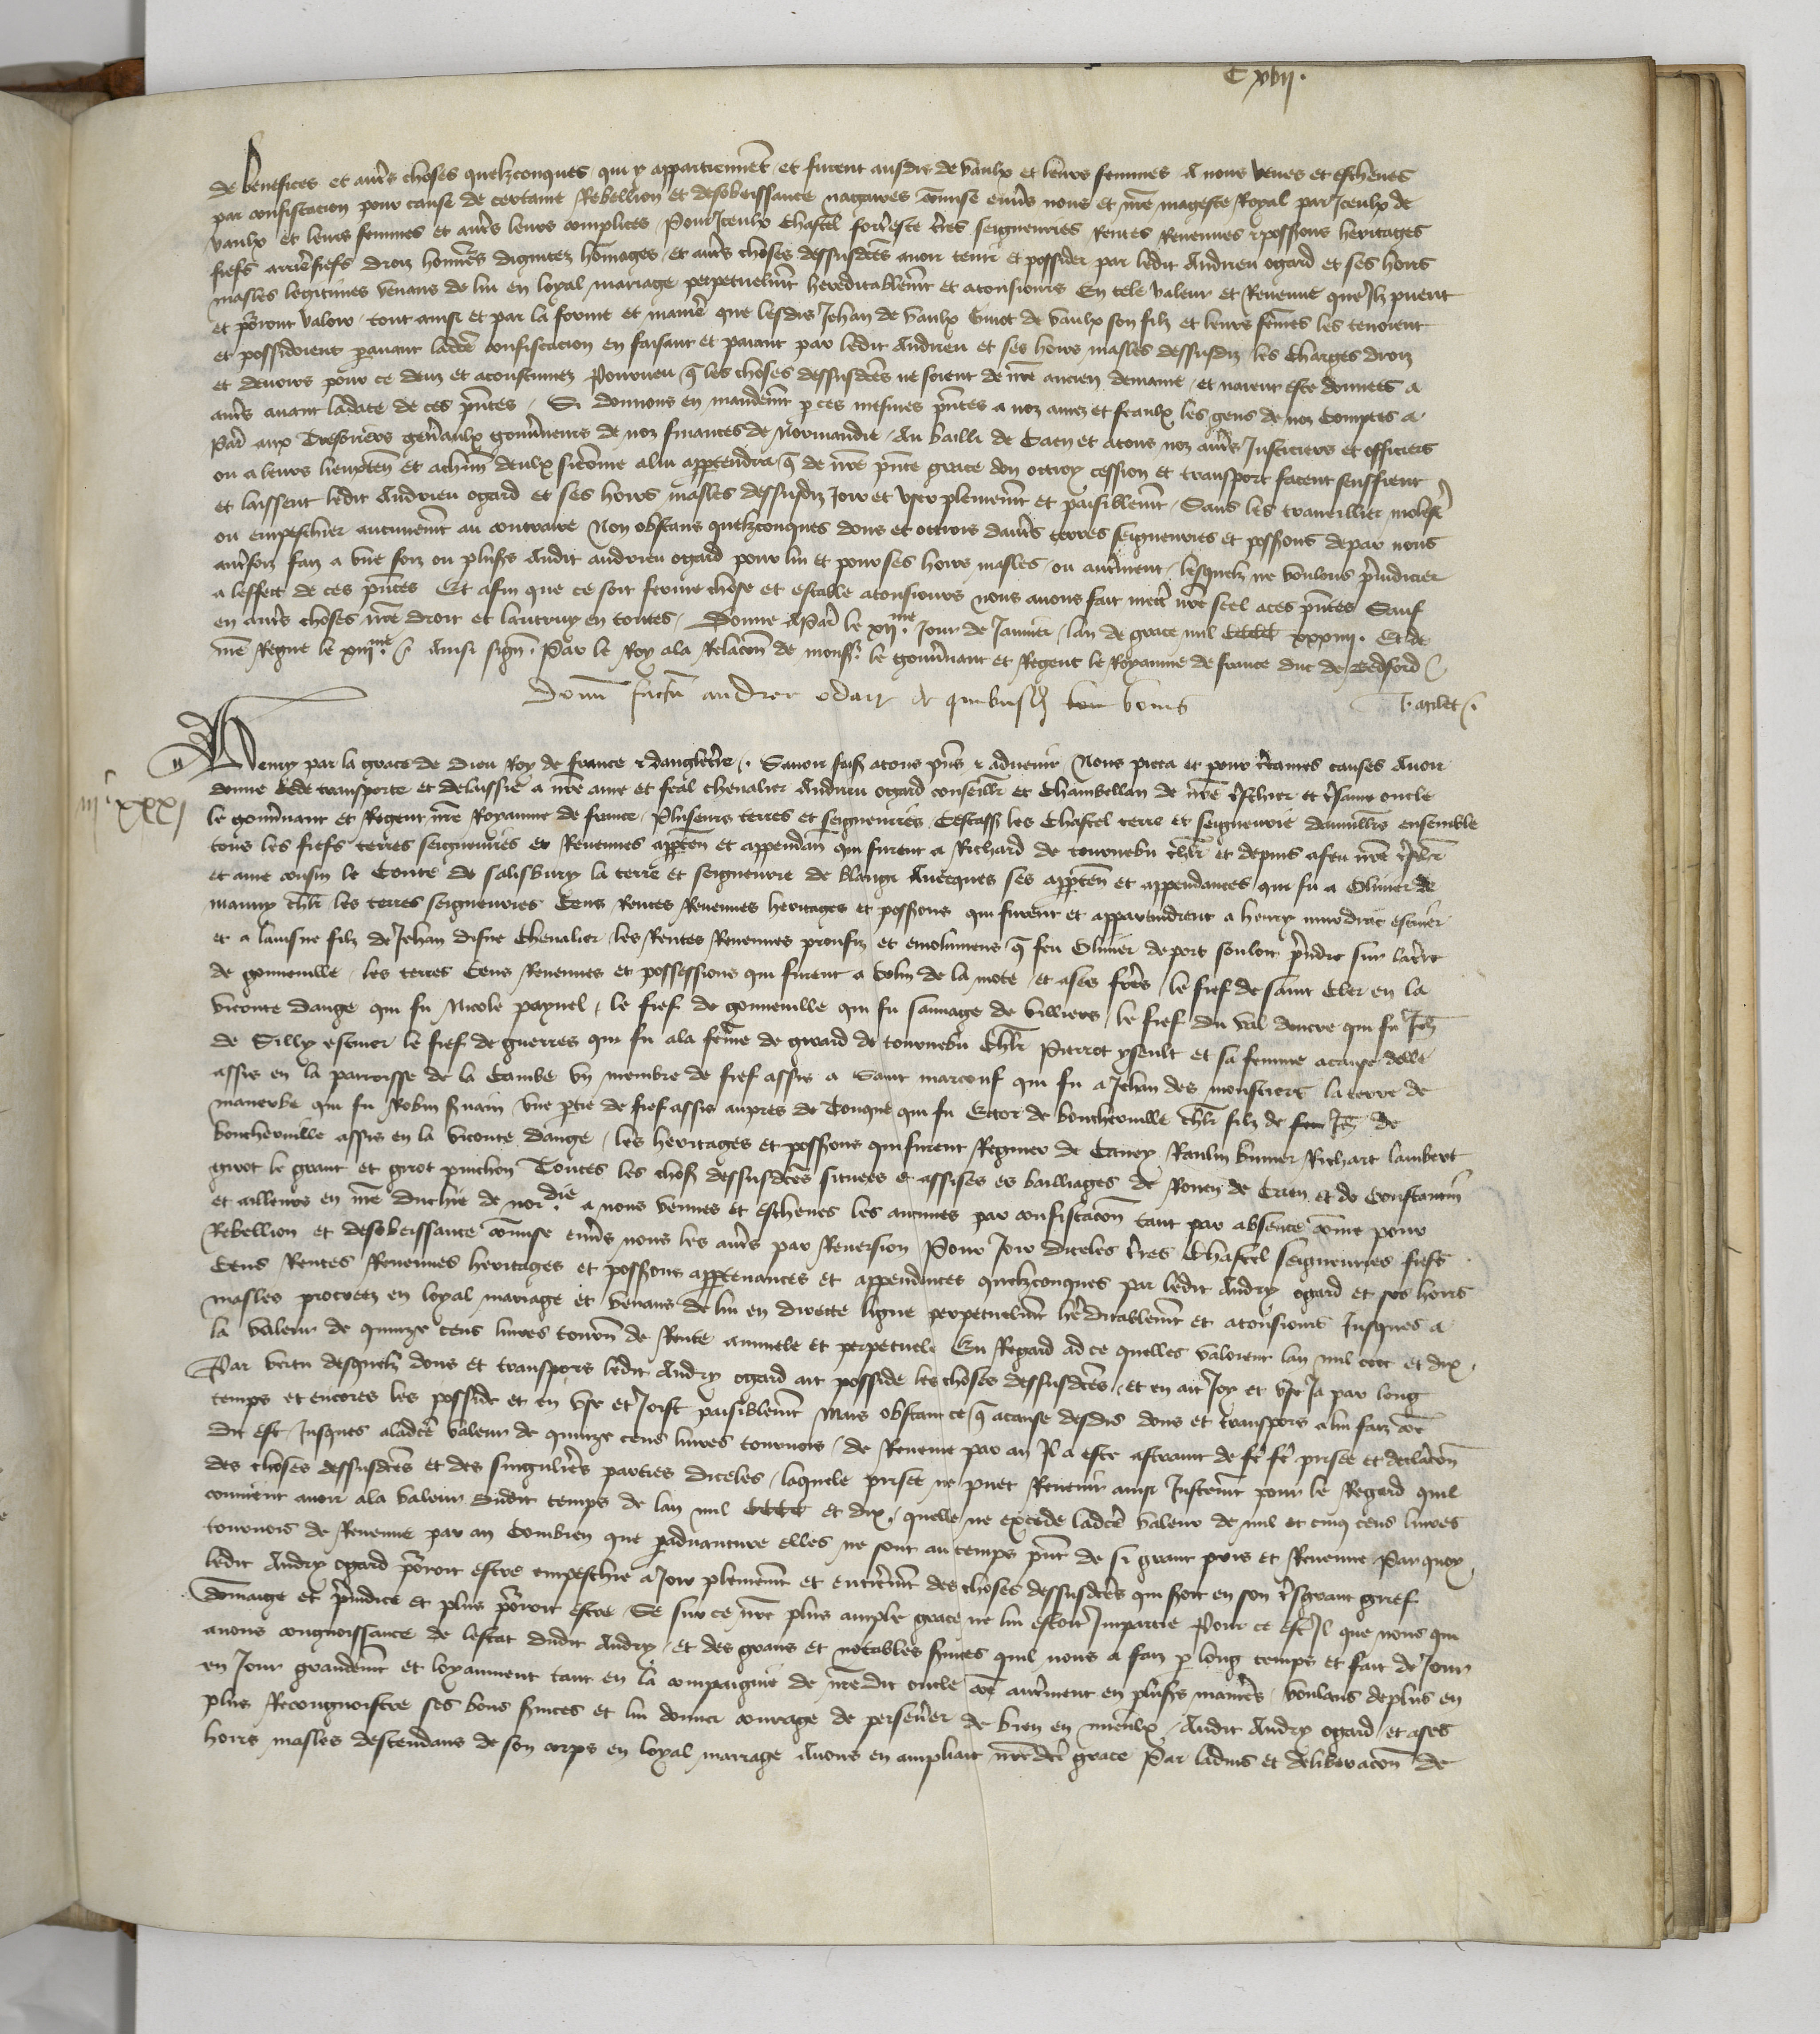 C xvii.
de benefices et aut̃s choses quelzconques qui y appartiennẽt et furent ausdis de vaulx et leurs femmes A nous venus et escheues
par confiscacion pour cause de certaine Rebellion et desobeissance nagaires com̃ise enũs nous et nr̃e mageste Royal par Iceulx de
vaulx et leurs femmes et aut̃s leurs complices Pour Iceulx Chastel fort̃este t̃res seigneuries Rentes Revenues possions heritages
fiefs arrierefiefs droiz honneurs dignitez hommages et aut̃s choses dessusdc̃es avoir tenir et posseder par ledit Andrieu ogard et ses hoirs
masles legitimes venans de lui en loyal mariage perpetuelmt̃ hereditablemt̃ et atousiours En tele valeur et Revenue que Ilz puent
et pr̃ont valoir tout ainsi et par la forme et manie que lesdis Jehan de vaulx Guiot de vaulx son filz et leurs fem̃es les tenoient
et possidoient p̃avant ladcẽ confiscacion en faisant et paiant par ledit Andrieu et ses hoirs masles dessusdiz les Charges droiz
et devoirs pour ce deuz et acoustumez Pourveu q̃ les choses dessusdcẽs ne soient de nr̃e ancien demaine et naient este donnees a
aut̃s avant la date de ces pñtes Si donnons en mandemt̃ p ces mesmes pñtes a noz amez et feaulx les gens de noz Comptes a
Par̃ aux Tresoriers gen̄aulx gouv̄neurs de noz finances de Normandie Au bailli de Caen et atous noz aut̃s Justiciers et officiers
ou a leurs lieuxten̄ et achũn deulx sicom̃e alui appertendra q̃ de nr̃e pñte grace don ottroy cession et transport facent seuffrent
et laissent ledit Andrieu ogard et ses hoirs masles dessusdiz Joir et user plenemt̃ et paisiblemt̃ Sans les traveillier molest̃
ou empeschier aucunemt̃ au contraire Non obstans quelzconques dons et ottrois daut̃s terres seigneuries et possions depar nous
autrefoiz faiz a une foiz ou plus̃s Audit andrieu ogard pour lui et pour ses hoirs masles ou autremt̃ lesquelz ne voulons p̃iudicier
a leffect de ces pñtes Et afin que ce soit ferme chose et estable atousiours nous avons fait mect̃ nr̃e seel aces pñtes Sauf
en aut̃s choses nr̃e droit et lautruy en toutes Donne APar̃ le xiime Jour de Janvier lan de grace mil CCCC xxxiiii. Et de
nr̃e Regne le xiiime Ainsi sign̄. Par le Roy ala Relacõn de monss̃. le gouv̄nant et Regent le Royaume de france duc de Bedford
Donũ factũ andree odart de quibusd̃ bonis
iiiᶜ xxxi
Henry par la grace de Dieu Roy de france & dangleterre. Savoir fais̃ atous pñs & advenir Nous pieca et pour cẽtaines causes Avoir
donne cede transporte et delaissie a nr̃e ame et feal chevalier Andrieu ogard conseillr̃ et Chambellan de nr̃e tr̃schier et tr̃same oncle
le gouv̄nant et Regent nr̃e Royaume de france Pluseurs terres et seigneuries Cestass̃ les Chastel terre et seigneurie dauvill̃rs ensemble
tous les fiefs terres seigneuries et Revenues apparten̄ et appendan̄ qui furent a Richard de tournebu ch̃lr et depuis afeu nr̃e tr̃schr̃
et ame cousin le Conte de salisbury la terre et seigneurie de blangi Avecques ses apparten̄ et appendances qui fu a Olivier de
mauny ch̃lr les terres seigneuries Cens Rentes Revenues heritages et possions qui furent et apparteindrent a henry murdrac escuier
et a lainsne filz de Jehan disne Chevalier les Rentes Revenues proufiz et emolumens q̃ feu Olivier deport souloit p̃ndre sur lat̃re
de gonneville les terres Cens Revenues et possessions qui furent a Colin de la mote et ases fr̃es le fief de saint Cler en la
viconte dauge qui fu Nicole paynel le fief de gonneville qui fu sauvage de villiers le fief du val doncre qui fu Jeh̃
de Silly escuier le fief de guerres qui fu ala fem̃e de girard de tournebu Ch̃lr Pierrot yseult et sa femme acause delle
assis en la parroisse de la Cambe un membre de fief assis a Saint marcouf qui fu a Jehan des monstiers la terre de
manerbe qui fu Robin servain une p̃tie de fief assis aupres de Touque qui fu Ector de boucherville ch̃lr filz de Jeh̃ de
boucherville assis en la viconte dauge les heritages et possions qui furent Regnier de Caney Raulin bunier Richart lambert
girot le grant et girot pinchon Toutes les chos̃ dessusdcẽs situees & assises es bailliages de Rouen de Caen et de Constantin
et ailleurs en nr̃e duchie de nor.die a nous venues et escheues les aucunes par confiscacõn tant par absence com̃e pour
Rebellion et desobeissance com̃ise enũs nous les aut̃s par Reversion Pour Joir diceles t̃res Chastel seigneuries fiefs
Cens Rentes Revenues heritages et possions appartenances et appendences quelzconques par ledit Andry ogard et ses hoirs
masles procreez en loyal mariage et venans de lui en directe ligne perpetuelmt̃ hr̃editablemt̃ et atousiours Jusques a
la valeur de quinze cens livres tourn̄ de Rente annuele et perpetuele En Regard ad ce quelles valoient lan mil cccc et dix.
Par vertu desquelz dons et transpors ledit Andry ogard ait posside les choses dessusdcẽs et en ait Joy et use Ja par long
temps et encores les posside et en use et Joist paisiblemt̃ Mais obstant ce q̃ acause desdis dons et transpors a lui faiz com̃e
dit est Jusques aladcẽ valeur de quinze cens livres tournois de Revenue par an Il a este astraint de fẽ fẽ prisee et declaracõn
des choses dessusdcẽs et des singulieres parties diceles laquele prisee ne puet Revenir ainsi Justemt̃ pour le Regard quil
convient avoir ala valeur dudit temps de lan mil CCCC et dix quelle ne excede ladcẽ valeur de mil et cinq cens livres
tournois de Revenue par an Combien que p̃adventure elles ne sont au temps pñt de si grant pris et Revenue Par quoy
ledit Andry ogard pr̃oit estre empeschie a Joir plenemt̃ et entieremt̃ des choses dessusdcẽs qui seroit en son tr̃sgrant grief
dom̃aige et p̃iudice et plus pr̃oit estre Se sur ce nr̃e plus ample grace ne lui estoit Impartie Pour ce est Il que nous qui
avons congnoissance de lestat dudit Andry et des grans et notables sũices quil nous a faiz p long temps et fait de Jour
en Jour grandemt̃ et loyaument tant en la compaignie de nr̃edit oncle com̃e autrement en plus̃s manieres Voulans deplus en
plus Recongnoistre ses bons sũices et lui donner courage de persev̄er de bien en mieulx Audit Andry ogard et ases
hoirs masles descendans de son corps en loyal mariage Avons en ampliant nr̃edcẽ grace Par ladvis et deliberacõn de